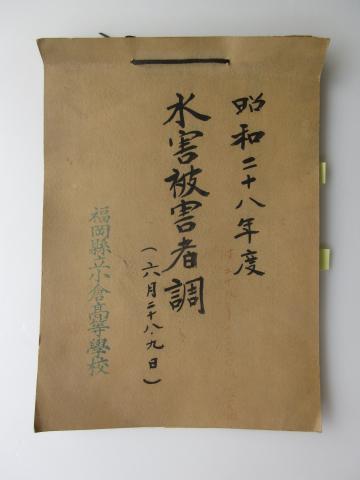 昭和二十八年度
水害被害者調
(六月二十八.九日)
福岡縣立小倉高等學校